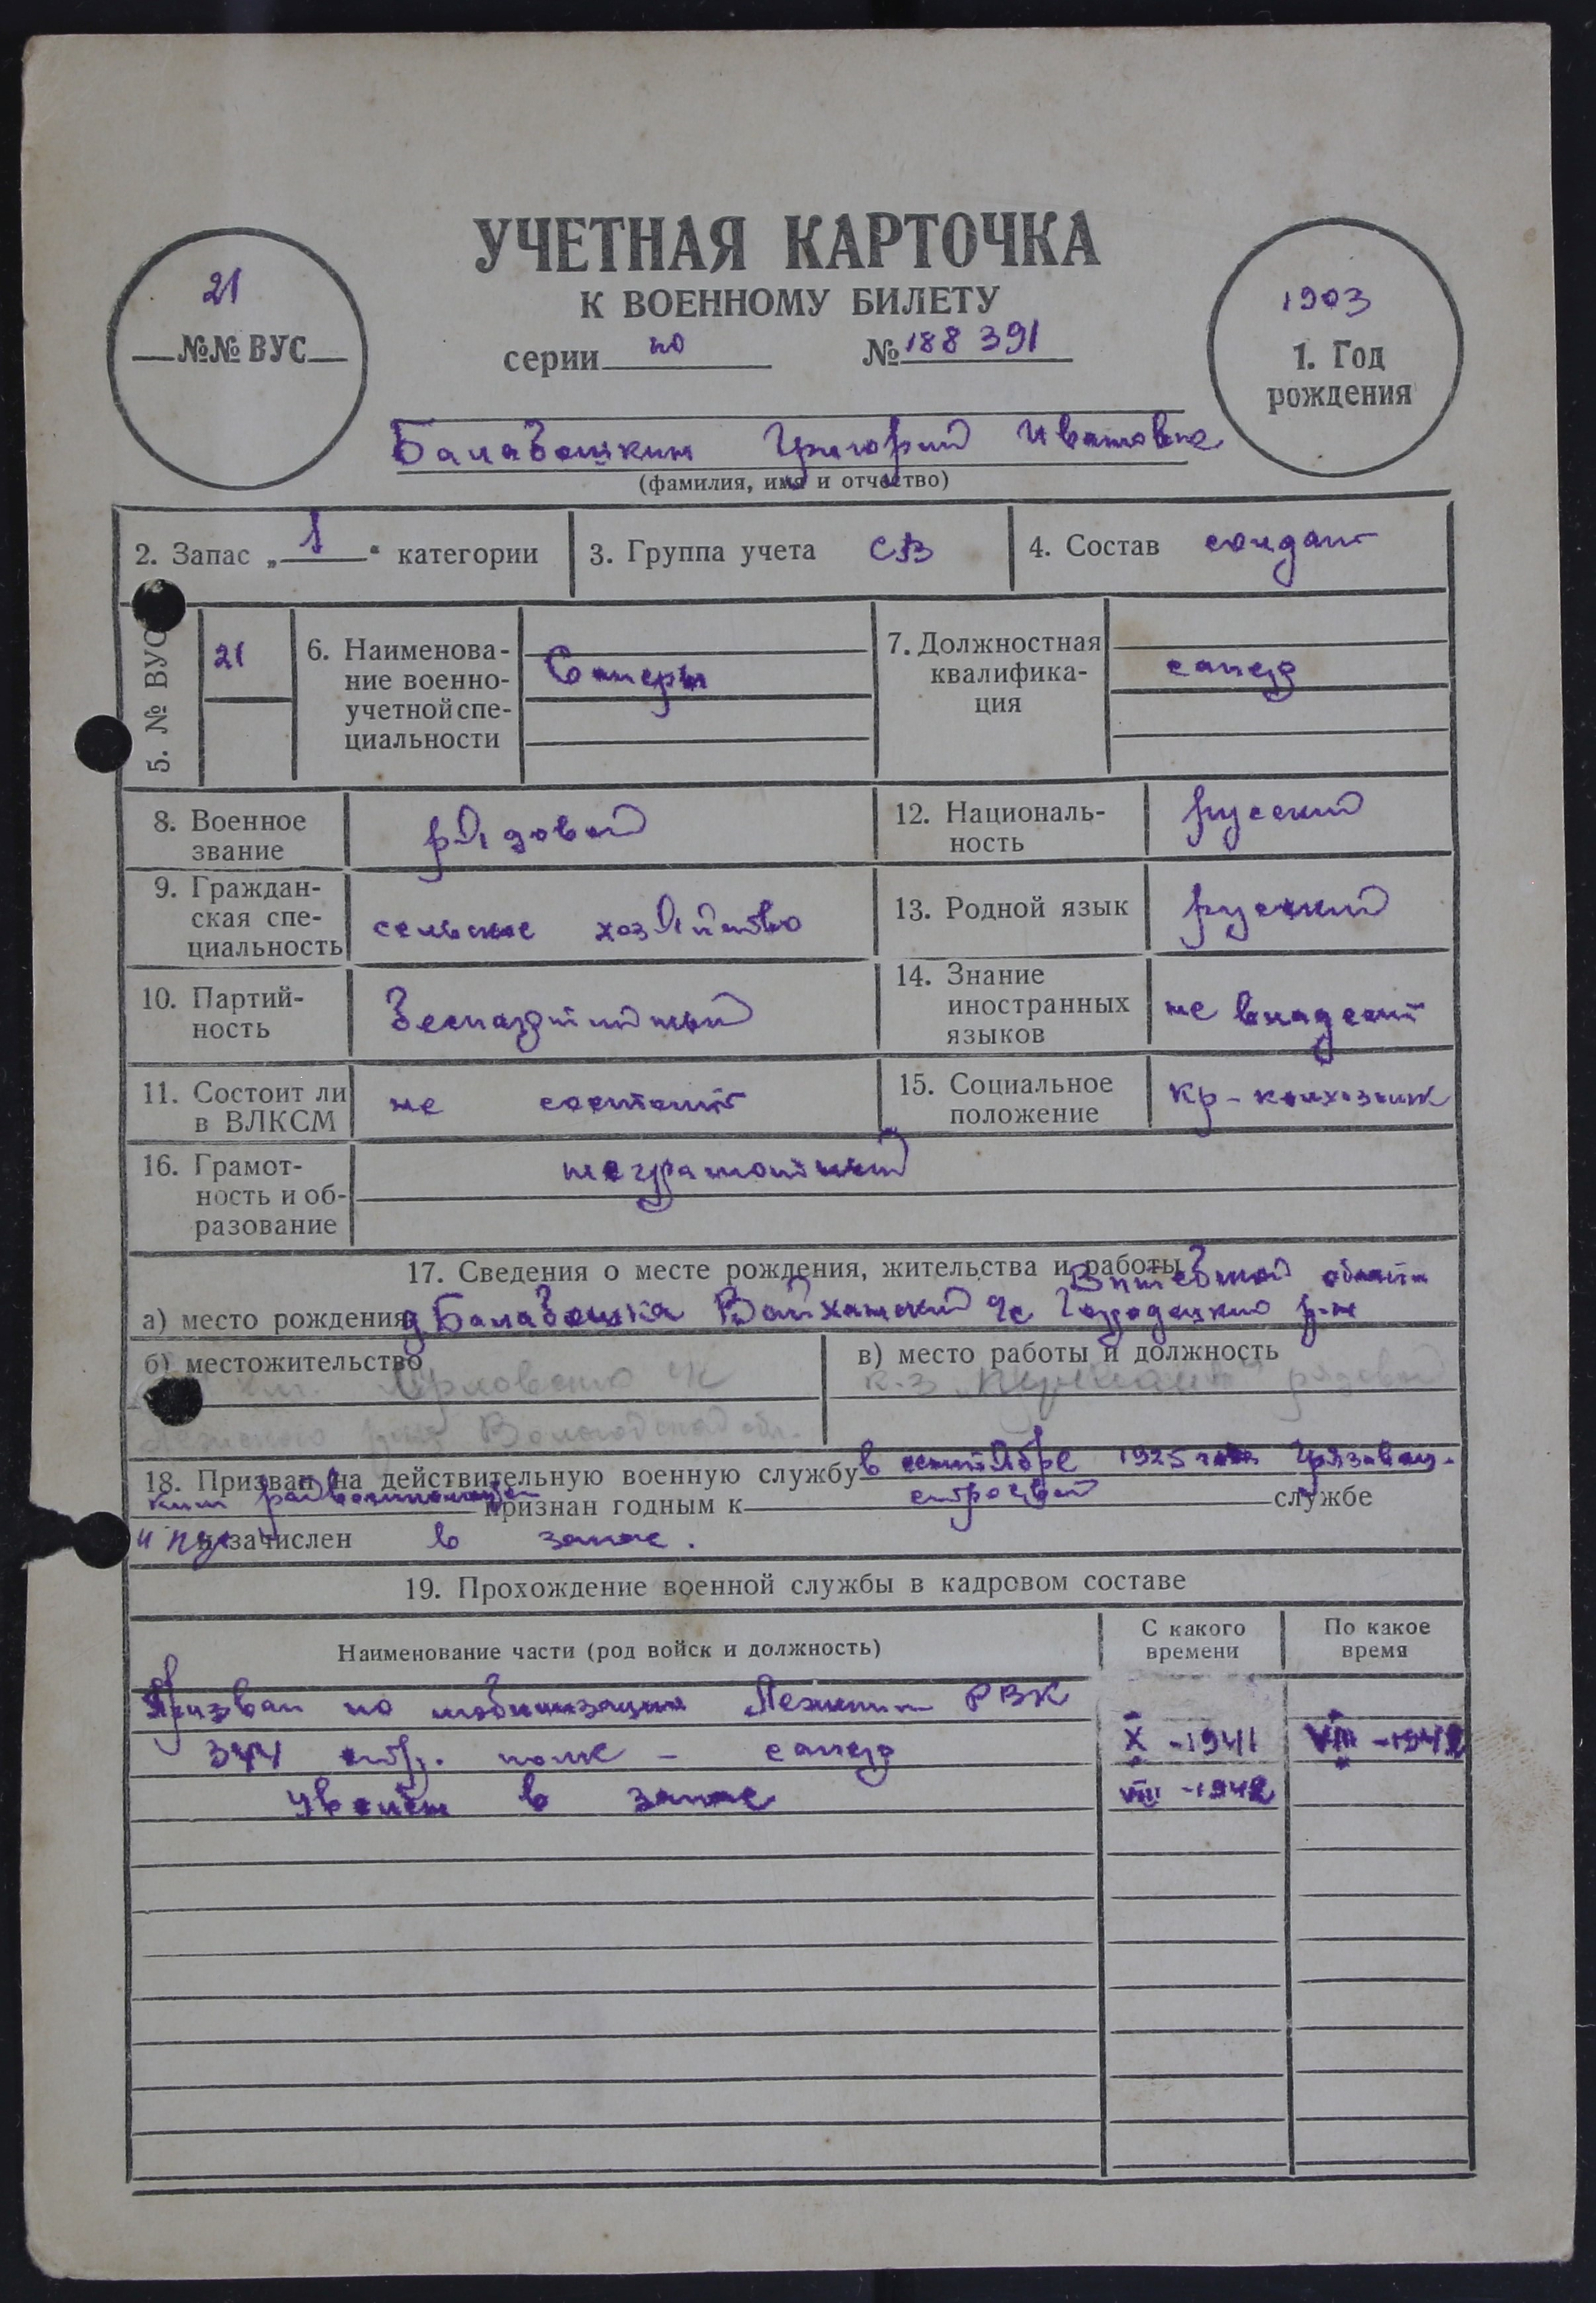 УЧЕТНАЯ КАРТОЧКА
К ВОЕННОМУ БИЛЕТУ
серии но № 188391
21
№№ ВУС
1903
1. Год
рождения
Балабошкин Григорий Иванович
(фамилия, имя и отчество)
2. Запас „1“ категории
3. Группа учета СВ
4. Состав солдат
5. № ВУС 21
6. Наименова-
ние военно-
учетной спе-
циальности
Саперы
7. Должностная
квалифика-
ция
сапер
8. Военное
звание
рядовой
12. Националь-
ность
русский
9. Граждан-
ская спе-
циальность
сельское хозяйство
13. Родной язык русский
10. Партий-
ность
беспартийный
14. Знание
иностранных
языков
не владеет
11. Состоит ли
в ВЛКСМ
не состоит
15. Социальное
положение
кр-колхозник
16. Грамот-
ность и об-
разование
неграмотный
17. Сведения о месте рождения, жительства и работы
Витебской области
а) место рождения д Балабошка Войханский с/с Городецкий р-н
б) местожительство
Орловского
района Вологодской обл.
в) место работы и должность
к-з рядовой
18. Призван на действительную военную службу в сентябре 1925 года Грязовец-
ким райвоенкоматом признан годным к строевой службе
и зачислен в запас.
19. Прохождение военной службы в кадровом составе
Наименование части (род войск и должность)
С какого
времени
По какое
время
Призван по мобилизации Лежским РВК
344 стр. полк - сапер X - 1941 VIII - 1942
уволен в запас VIII - 1942